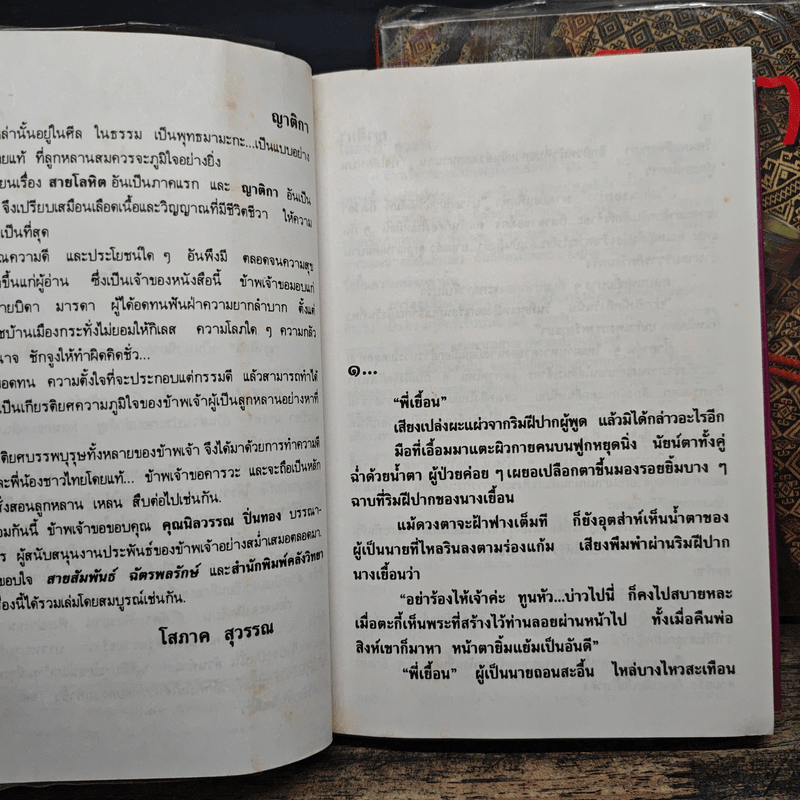 ญาติกา
เหล่านั้นอยู่ในศีล ในธรรม เป็นพุทธมามะกะ...เป็นแบบอย่าง
ที่ลูกหลานสมควรจะภูมิใจอย่างยิ่ง
เรื่อง สายโลหิต อันเป็นภาคแรก และ ญาติกา อันเป็น
จึงเปรียบเสมือนเลือดเนื้อและวิญญาณที่มีชีวิตชีวา ให้ความ
เป็นที่สุด
ความดี และประโยชน์ใด ๆ อันพึงมี ตลอดจนความสุข
ขึ้นแก่ผู้อ่าน ซึ่งเป็นเจ้าของหนังสือนี้ ข้าพเจ้าขอมอบแก่
บิดา มารดา ผู้ได้อดทนฟันฝ่าความยากลำบาก ตั้งแต่
บ้านเมืองกระทั่งไม่ยอมให้กิเลส ความโลภใด ๆ ความกลัว
ชักจูงให้ทำผิดคิดชั่ว...
ความตั้งใจที่จะประกอบแต่กรรมดี แล้วสามารถทำได้
เป็นเกียรติยศความภูมิใจของข้าพเจ้าผู้เป็นลูกหลานอย่างหาที่
บรรพบุรุษทั้งหลายของข้าพเจ้า จึงได้มาด้วยการทำความดี
และพี่น้องชาวไทยโดยแท้... ข้าพเจ้าขอคารวะ และจะถือเป็นหลัก
สั่งสอนลูกหลาน เหลน สืบต่อไปเช่นกัน.
ข้าพเจ้าขอขอบคุณ คุณนิลวรรณ ปิ่นทอง บรรณา-
ผู้สนับสนุนงานประพันธ์ของข้าพเจ้าอย่างสม่ำเสมอตลอดมา
ขอบใจ สายสัมพันธ์ ฉัตรพลรักษ์ และสำนักพิมพ์คลังวิทยา
นี้ได้รวมเล่มโดยสมบูรณ์เช่นกัน.
โสภาค สุวรรณ
๑...
“พี่เยื้อน”
เสียงเปล่งผะแผ่วจากริมฝีปากผู้พูด แล้วมิได้กล่าวอะไรอีก
มือที่เอื้อมมาแตะผิวกายคนบนฟูกหยุดนิ่ง นัยน์ตาทั้งคู่
ฉ่ำด้วยน้ำตา ผู้ป่วยค่อย ๆ เผยอเปลือกตาขึ้นมองรอยยิ้มบาง ๆ
ฉาบที่ริมฝีปากของนางเยื้อน
แม้ดวงตาจะฝ้าฟางเต็มที ก็ยังอุตส่าห์เห็นน้ำตาของ
ผู้เป็นนายที่ไหลรินลงตามร่องแก้ม เสียงพึมพำผ่านริมฝีปาก
นางเยื้อนว่า
“อย่าร้องไห้เจ้าค่ะ ทูนหัว...บ่าวไปนี่ ก็คงไปสบายหละ
เมื่อตะกี้เห็นพระที่สร้างไว้ท่านลอยผ่านหน้าไป ทั้งเมื่อคืนพ่อ
สิงห์เขาก็มาหา หน้าตายิ้มแย้มเป็นอันดี”
“พี่เยื้อน” ผู้เป็นนายถอนสะอื้น ไหล่บางไหวสะเทือน